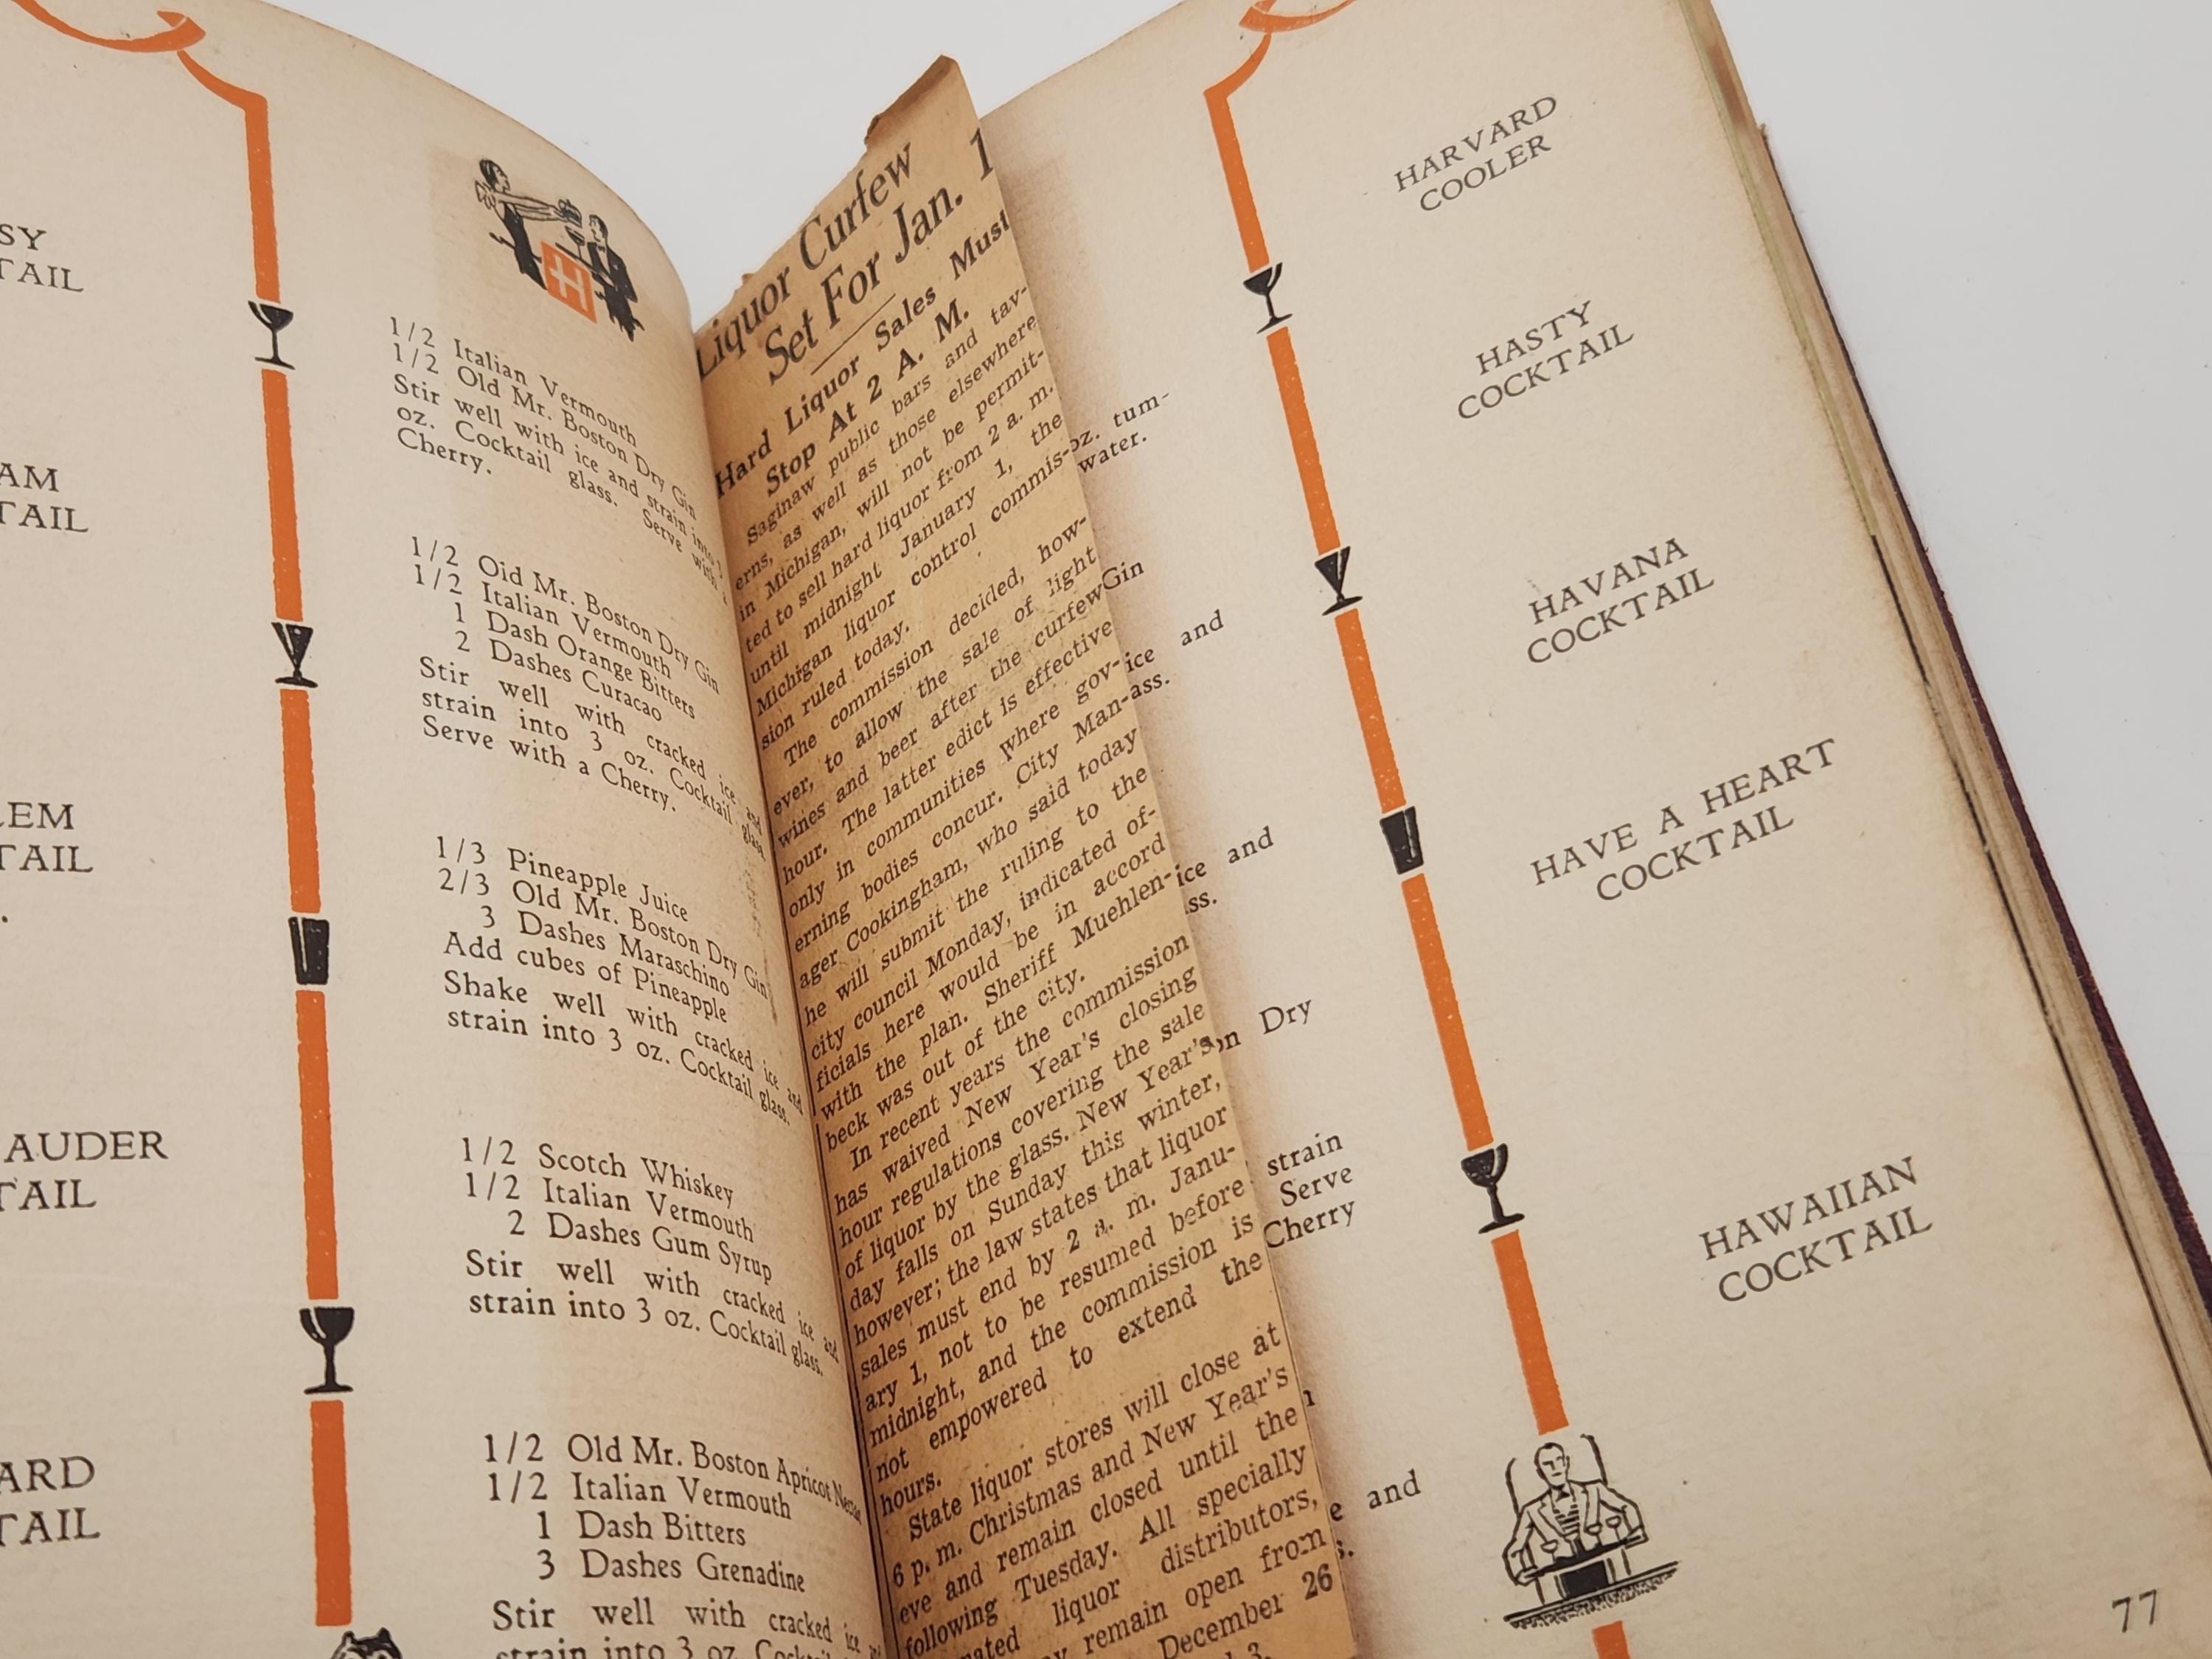 SY
TAIL
AM
TAIL
LEM
TAIL
AUDER
TAIL
ARD
TAIL
H
1/2 Italian Vermouth
1/2 Old Mr. Boston Dry Gin
Stir well with ice and strain into 3
oz. Cocktail glass. Serve with a
Cherry.
1/2 Old Mr. Boston Dry Gin
1/2 Italian Vermouth
1 Dash Orange Bitters
2 Dashes Curacao
Stir well with cracked ice and
strain into 3 oz. Cocktail glass.
Serve with a Cherry.
1/3 Pineapple Juice
2/3 Old Mr. Boston Dry Gin
3 Dashes Maraschino
Add cubes of Pineapple
Shake well with cracked ice and
strain into 3 oz. Cocktail glass.
1/2 Scotch Whiskey
1/2 Italian Vermouth
2 Dashes Gum Syrup
Stir well with cracked ice and
strain into 3 oz. Cocktail glass.
1/2 Old Mr. Boston Apricot
1/2 Italian Vermouth
1 Dash Bitters
3 Dashes Grenadine
Stir well with cracked ice
strain into 3 oz.
Liquor Curfew
Set For Jan. 1
Hard Liquor Sales Must
Stop At 2 A. M.
Saginaw public bars and tav-
erns, as well as those elsewhere
in Michigan, will not be permit-
ted to sell hard liquor from 2 a. m.
until midnight January 1, the
Michigan liquor control commis-
sion ruled today.
The commission decided, how-
ever, to allow the sale of light
wines and beer after the curfew
hour. The latter edict is effective
only in communities where gov-
erning bodies concur. City Man-
ager Cookingham, who said today
he will submit the ruling to the
city council Monday, indicated of-
ficials here would be in accord
with the plan. Sheriff Muehlen-
beck was out of the city.
In recent years the commission
has waived New Year's closing
hour regulations covering the sale
of liquor by the glass. New Year's
day falls on Sunday this winter,
however; the law states that liquor
sales must end by 2 a. m. Janu-
ary 1, not to be resumed before
midnight, and the commission is
not empowered to extend the
hours.
State liquor stores will close at
6 p. m. Christmas and New Year's
eve and remain closed until the
following Tuesday. All specially
nated liquor distributors,
remain open from
December 26
3.
oz. tum-
water.
Gin
ice and
ass.
ice and
ss.
on Dry
strain
Serve
Cherry
e and
s.
HARVARD
COOLER
HASTY
COCKTAIL
HAVANA
COCKTAIL
HAVE A HEART
COCKTAIL
HAWAIIAN
COCKTAIL
77